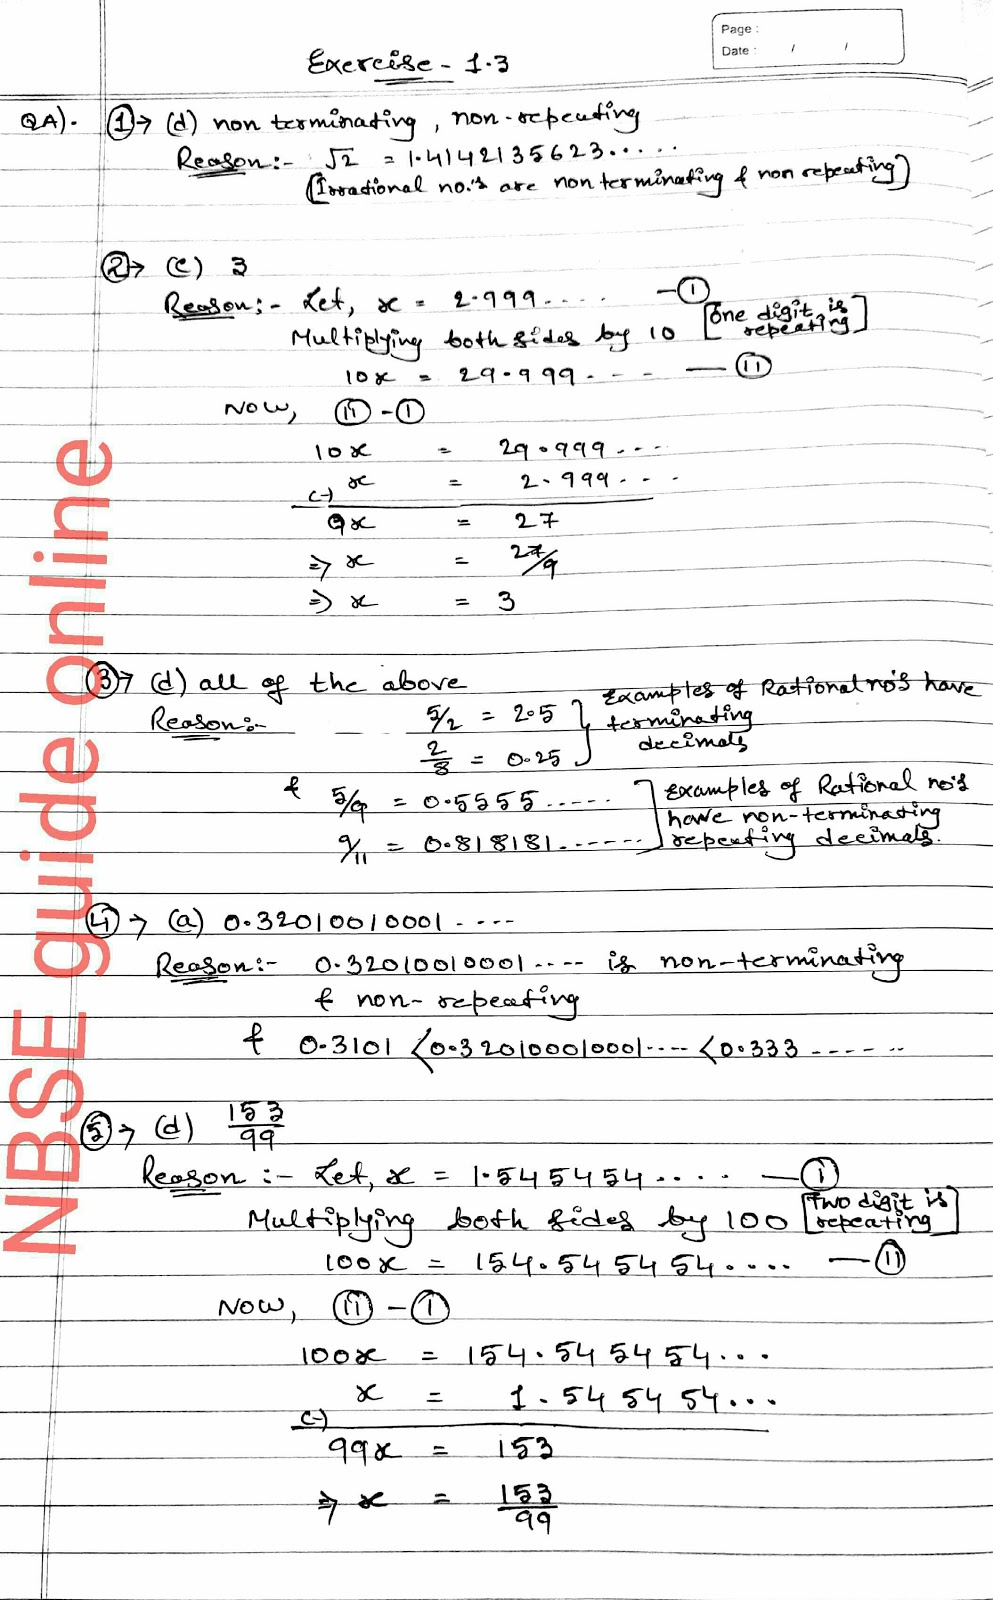 Page :
Date :   /   /
Exercise - 1.3
QA). ①→ (d) non terminating, non-repeating
Reason:- √2 = 1.4142135623.....
(Irrational no.'s are non terminating & non repeating)
②→ (c) 3
Reason:- Let, x = 2.999.... —①
Multiplying both sides by 10 [One digit is repeating]
10x = 29.999... —⑪
Now, ⑪ - ①
10x = 29.999...
(-) x = 2.999...
9x = 27
⇒ x = 27/9
⇒ x = 3
③→ (d) all of the above
Reason:- 5/2 = 2.5
2/8 = 0.25
Examples of Rational no's have
terminating
decimals
& 5/9 = 0.5555.....
9/11 = 0.818181......
Examples of Rational no's
have non-terminating
repeating decimals.
④→ (a) 0.32010010001....
Reason:- 0.32010010001.... is non-terminating
& non-repeating
& 0.3101 < 0.320100010001.... < 0.333.......
⑤→ (d) 153/99
Reason :- Let, x = 1.545454.... —①
Multiplying both sides by 100 [Two digit is repeating]
100x = 154.545454.... —⑪
Now, ⑪ - ①
100x = 154.545454...
(-) x = 1.545454...
99x = 153
⇒ x = 153/99
NBSE guide online